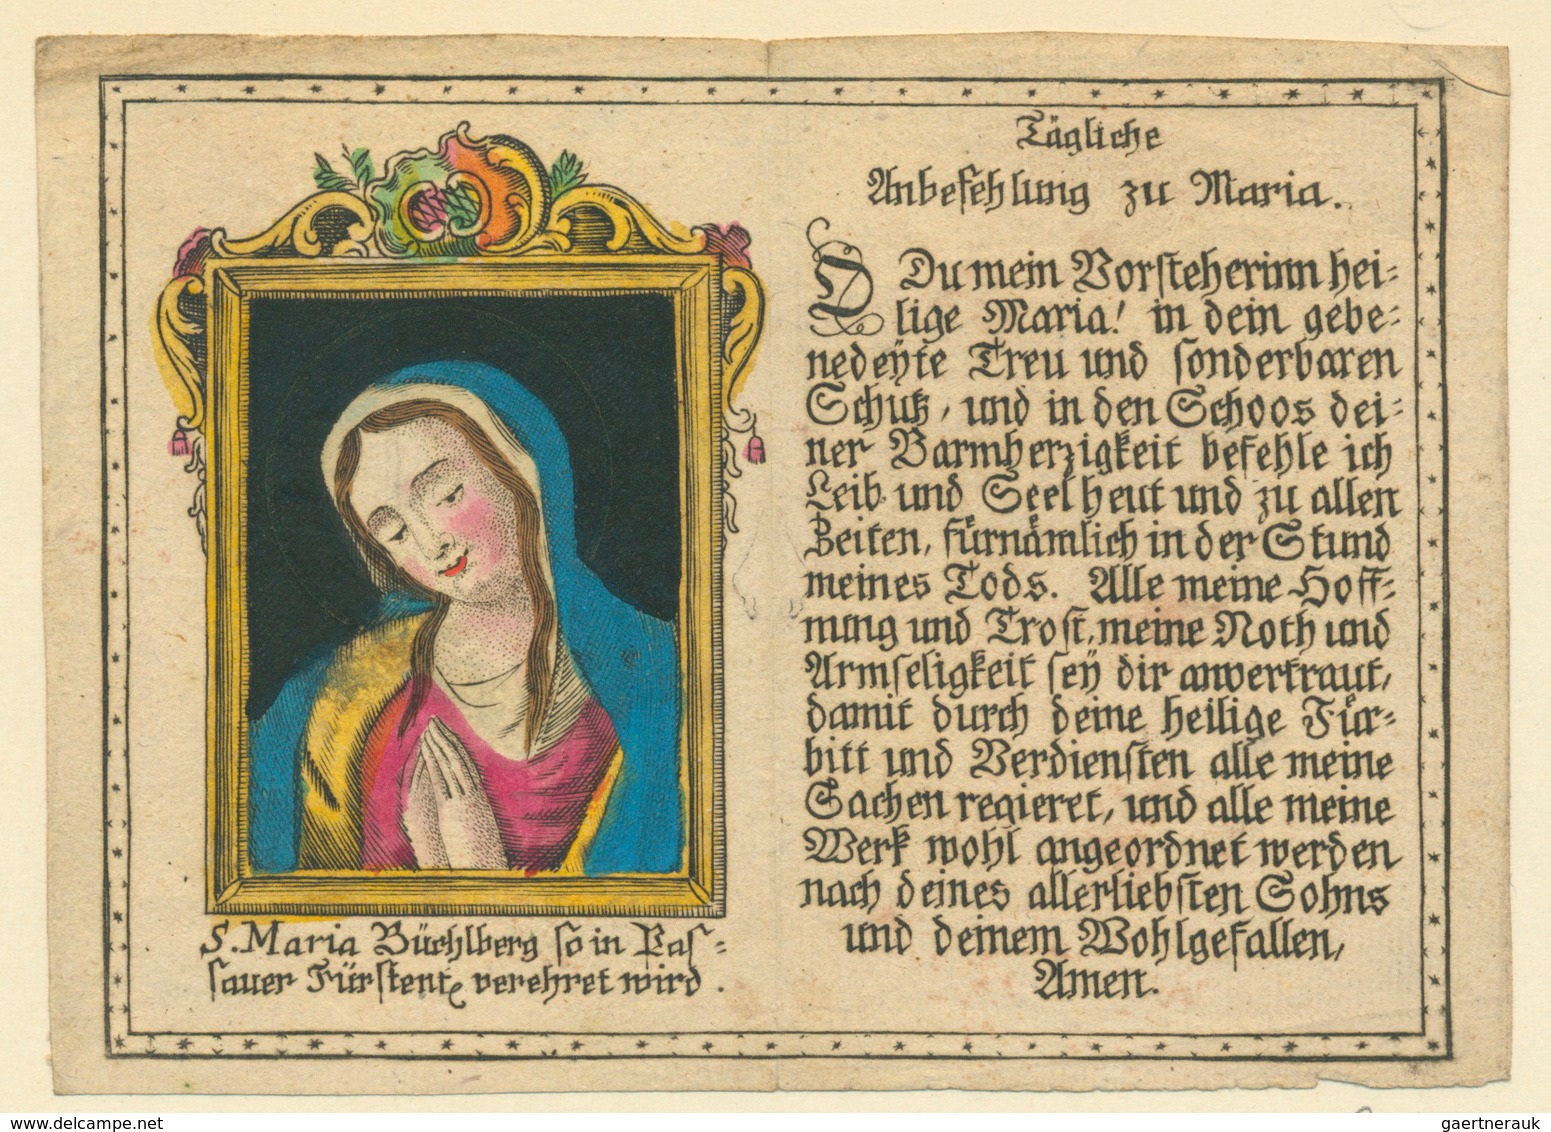 S. Maria Büchlberg so in Pas=
sauer Fürstent. verehret wird.
Tägliche
Anbefehlung zu Maria.
O Du mein Vorsteherinn hei=
lige Maria! in dein gebe=
nedeÿte Treu und sonderbaren
Schutz, und in den Schoos dei=
ner Barmherzigkeit befehle ich
Leib und Seel heut und zu allen
Zeiten, fürnämlich in der Stund
meines Tods. Alle meine Hoff=
nung und Trost, meine Noth und
Armseligkeit seÿ dir anvertraut,
damit durch deine heilige Für=
bitt und Verdiensten alle meine
Sachen regieret, und alle meine
Werk wohl angeordnet werden
nach deines allerliebsten Sohns
und deinem Wohlgefallen,
Amen.
gaertnerauk @ delcampe.net